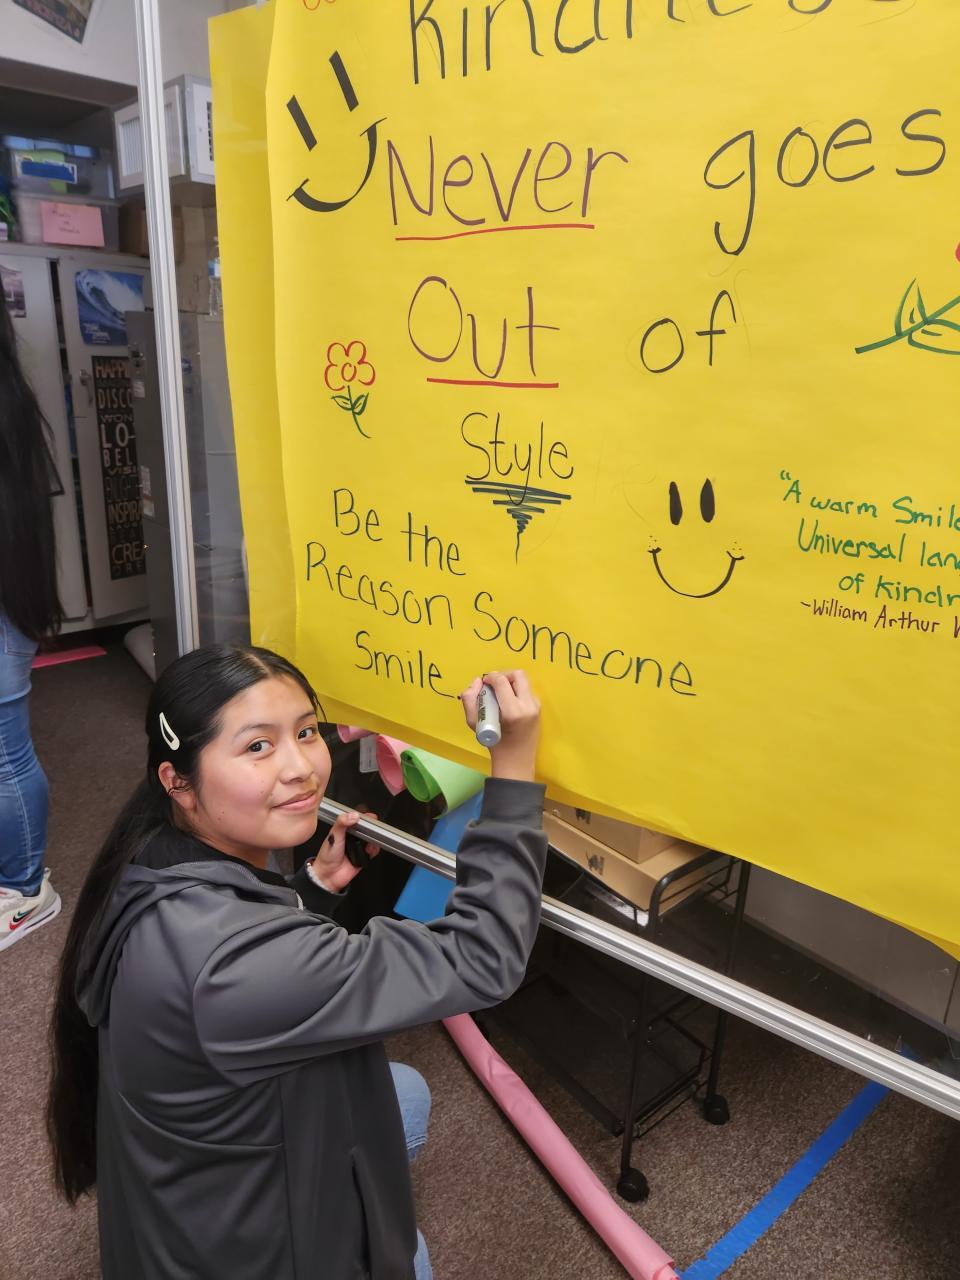 Kindness
Never goes
Out of
Style
Be the
Reason Someone
Smile.
"A warm Smile
Universal
of
-William Arthur
HAPPI
DISC
WON
LO-
BEL
VISI
INSPIRA
CREA